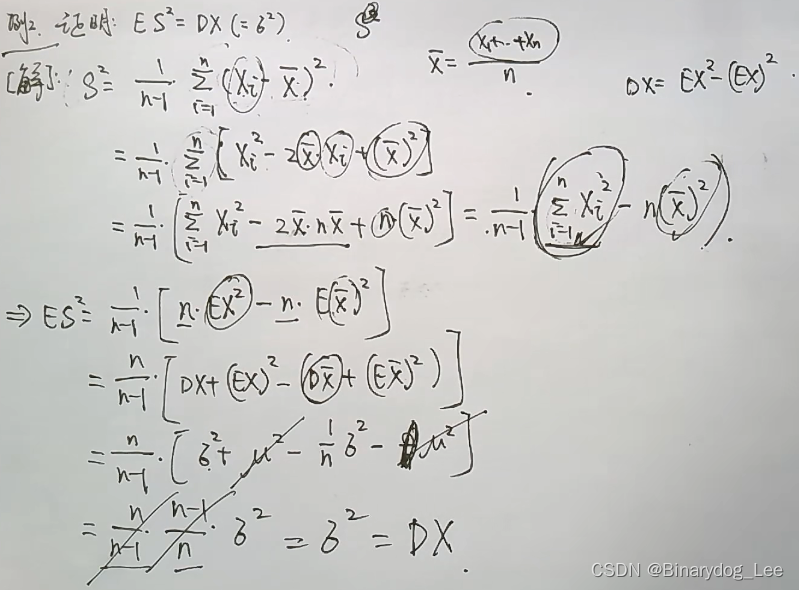 例2. 证明: ES² = DX (= σ²). S²
X̄ = (X₁+…+Xₙ)/n. DX = EX² - (EX)².
[解]: S² = 1/(n-1) · Σᵢ₌₁ⁿ (Xᵢ - X̄)².
= 1/(n-1) · Σᵢ₌₁ⁿ [Xᵢ² - 2X̄·Xᵢ + (X̄)²]
= 1/(n-1) · [Σᵢ₌₁ⁿ Xᵢ² - 2X̄·nX̄ + n(X̄)²] = 1/(n-1) · (Σᵢ₌₁ⁿ Xᵢ² - n(X̄)²).
⇒ ES² = 1/(n-1) · [n·EX² - n·E(X̄)²]
= n/(n-1) · [DX + (EX)² - (DX̄ + (EX̄)²)]
= n/(n-1) · [σ² + μ² - 1/n σ² - μ²]
= n/(n-1) · (n-1)/n · σ² = σ² = DX.
CSDN @Binarydog_Lee